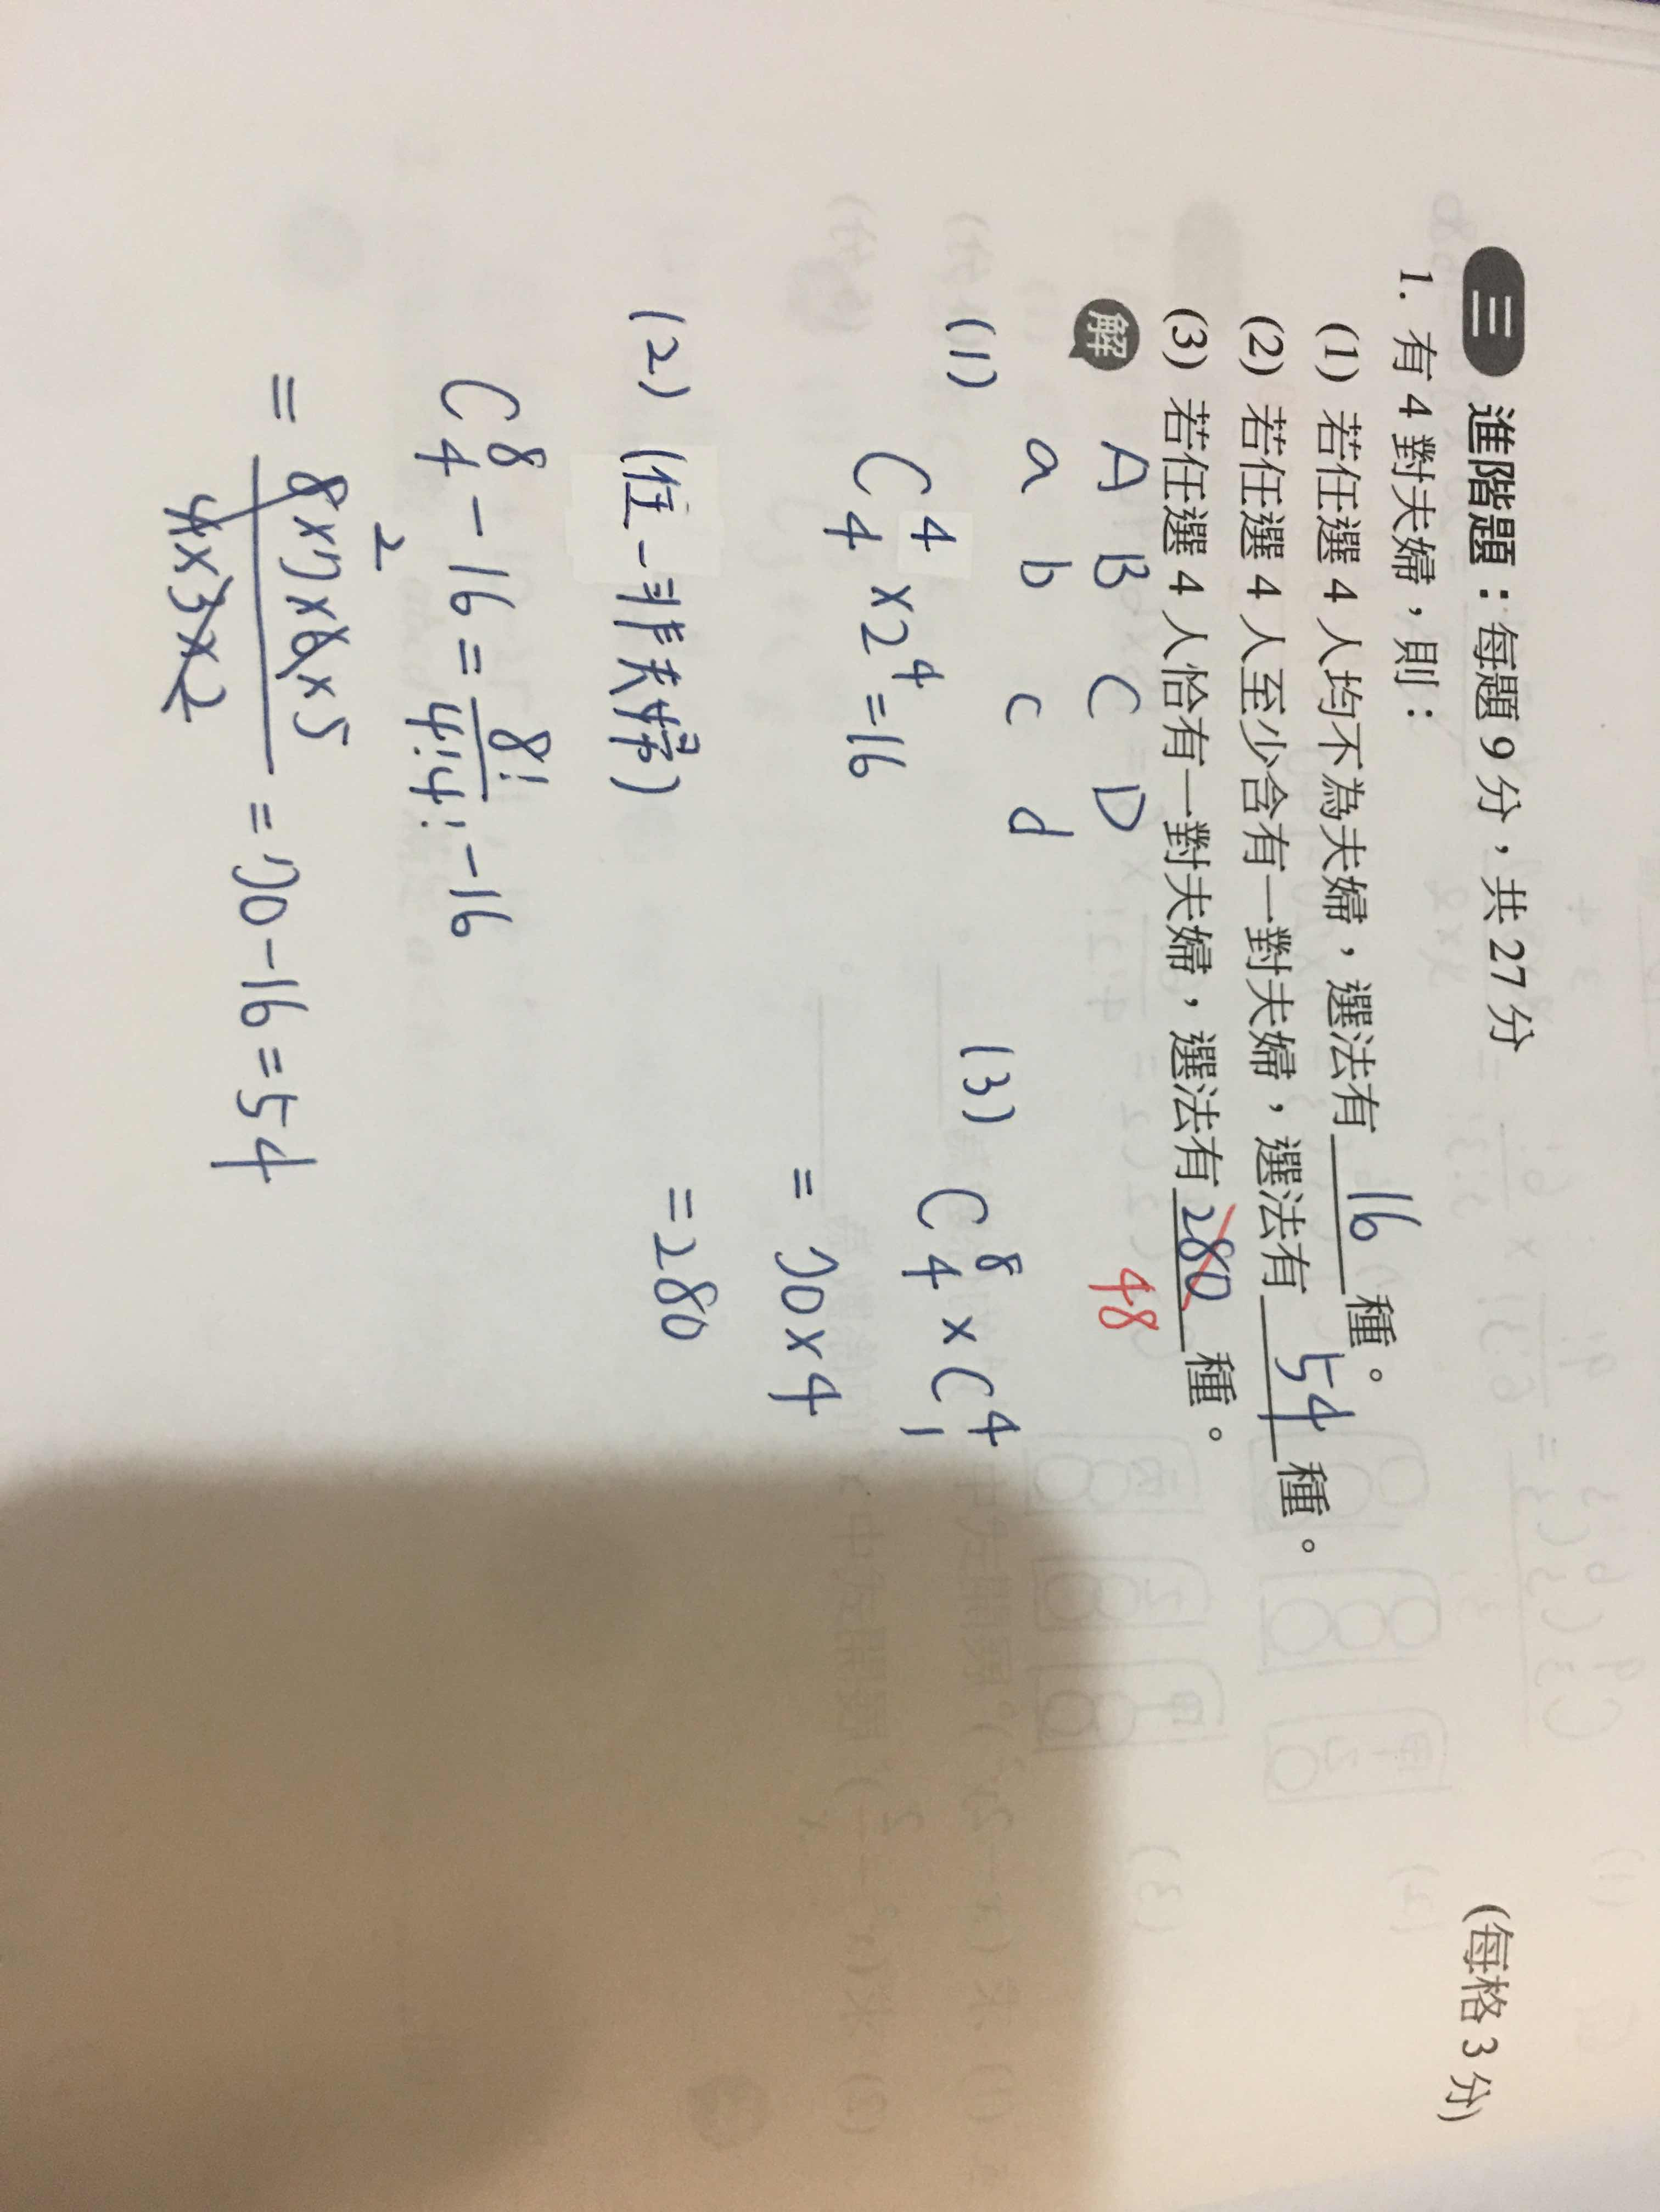 三 進階題：每題9分，共27分 (每格3分)
1. 有4對夫婦，則：
(1) 若任選4人均不為夫婦，選法有 16 種。
(2) 若任選4人至少含有一對夫婦，選法有 54 種。
(3) 若任選4人恰有一對夫婦，選法有 280 種。
48
解
A B C D
a b c d
(1)
C⁴₄ × 2⁴ = 16
(2) (任 - 非夫婦)
C⁸₄ - 16 = 8!/4!4! - 16
= 8×7×6×5/4×3×2 = 70 - 16 = 54
2
(3) C⁸₄ × C⁴₁
= 70 × 4
= 280